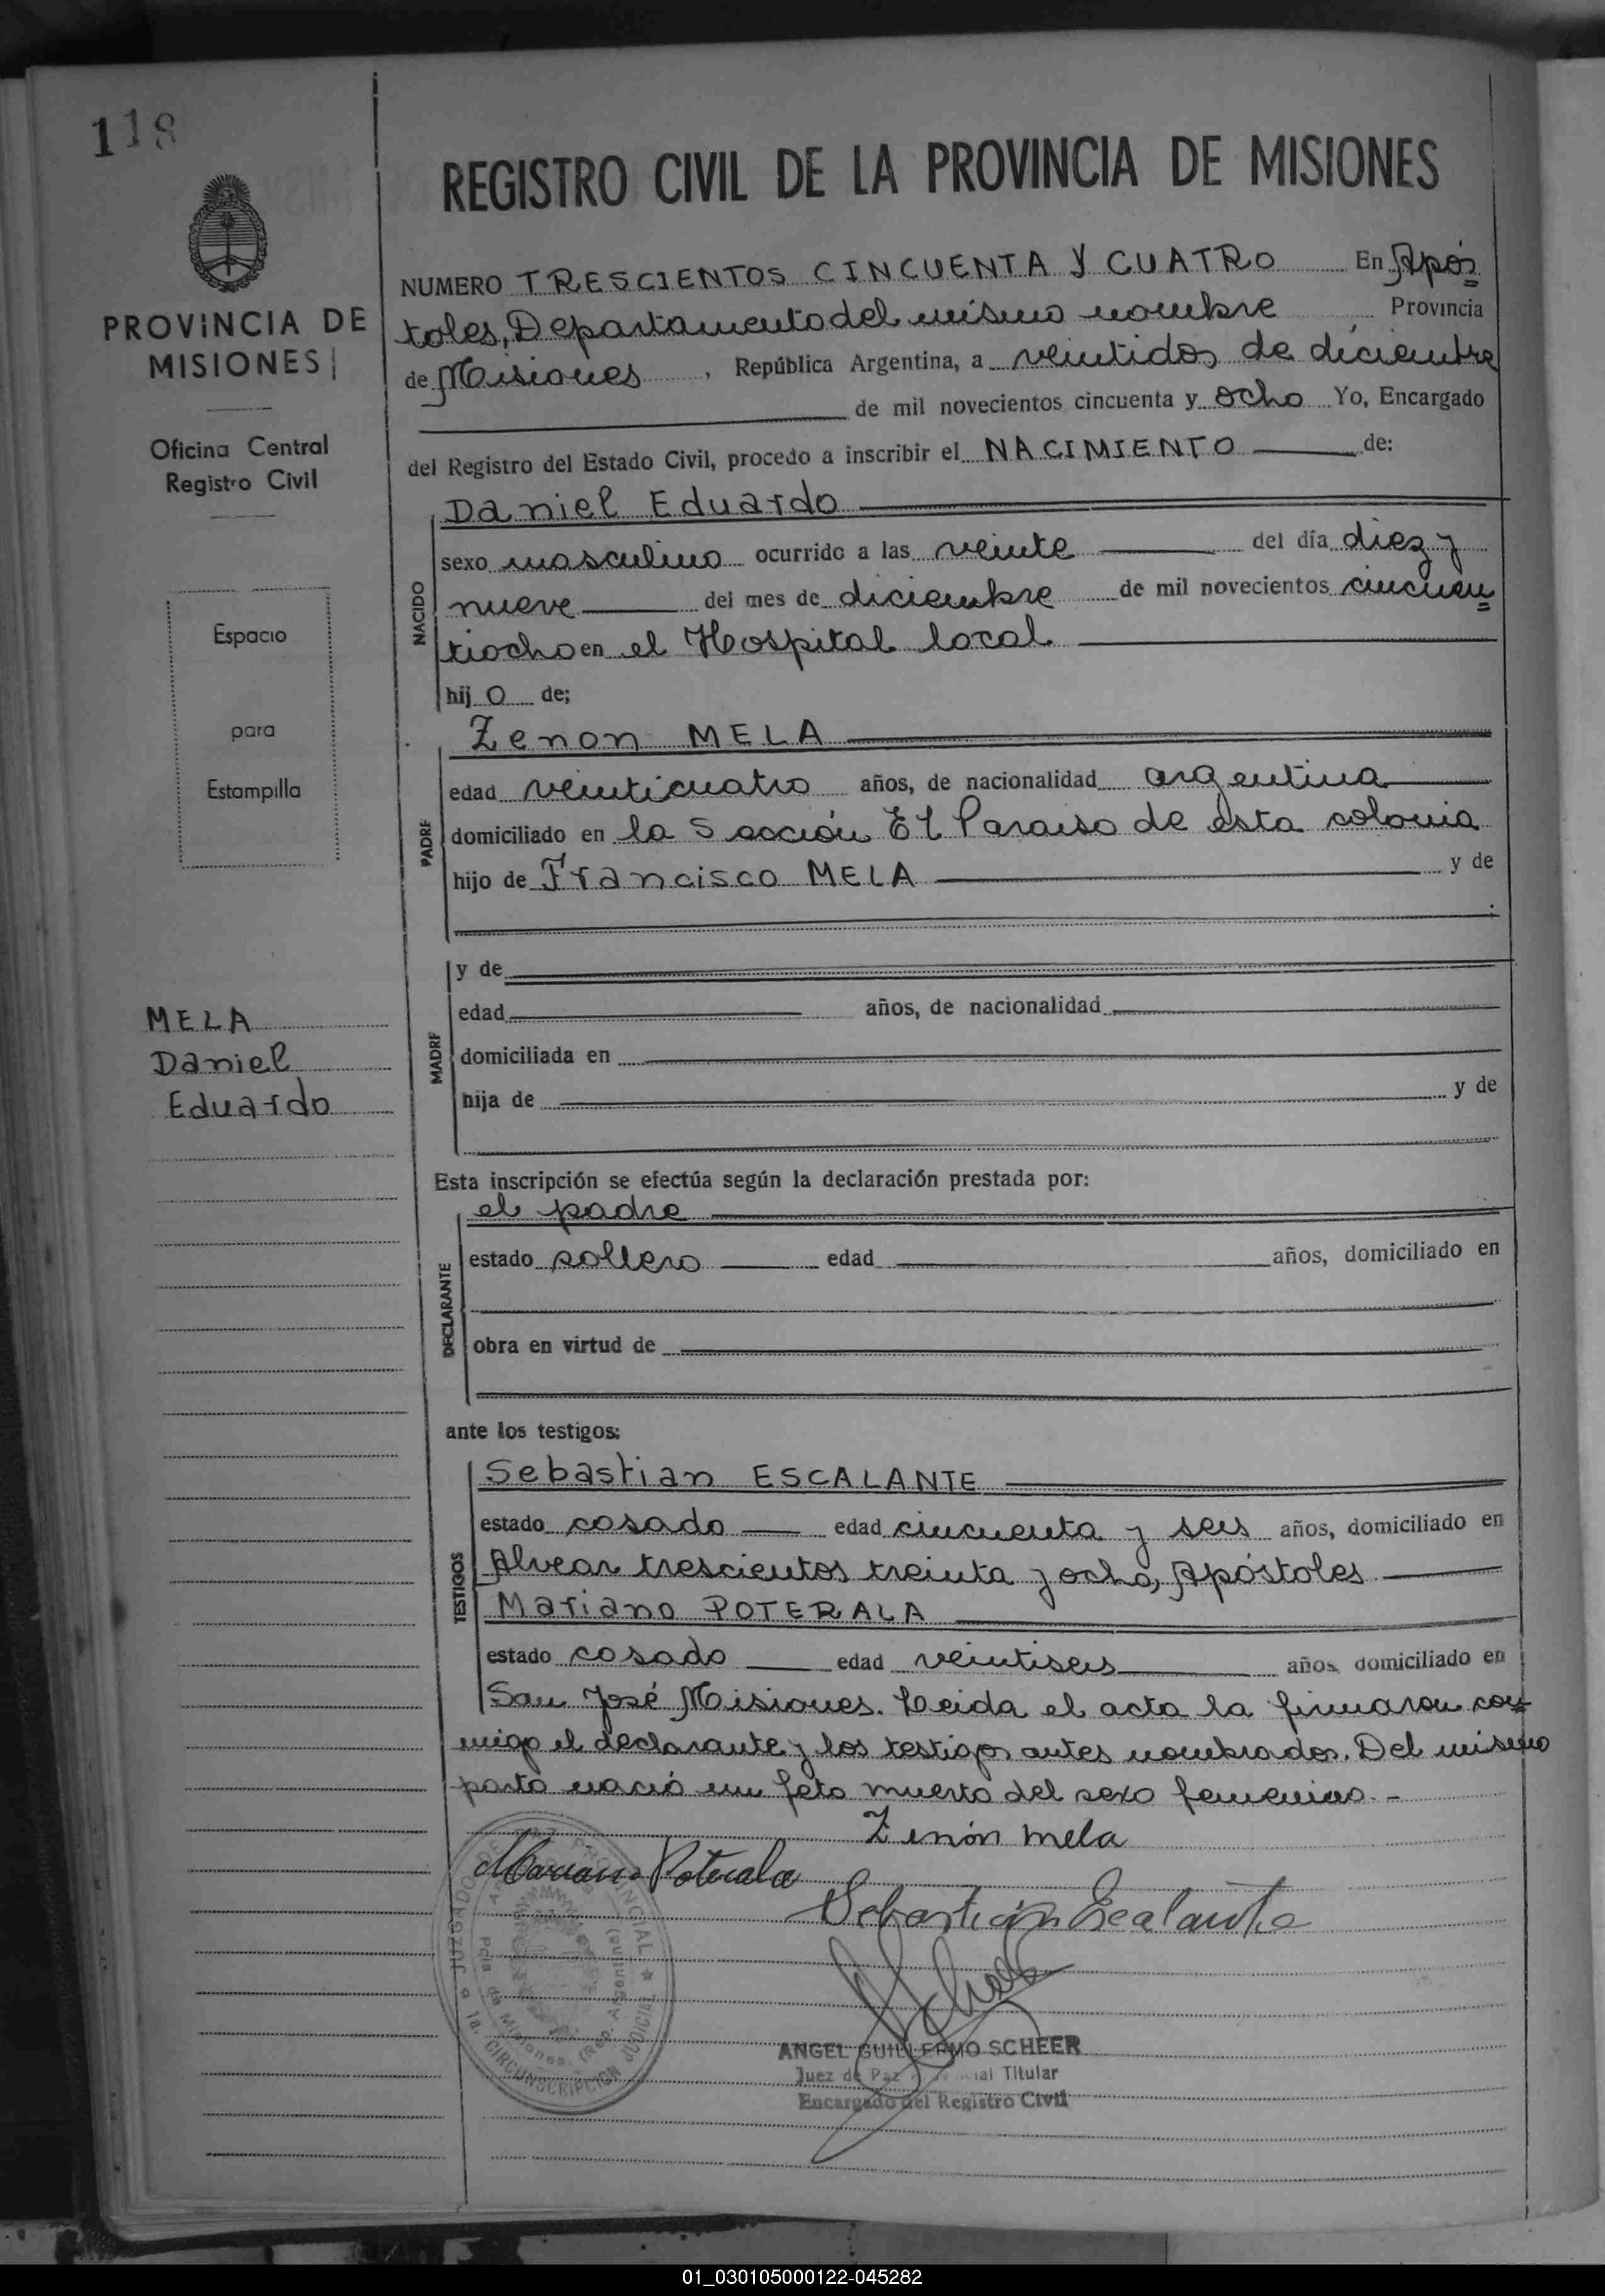 118
PROVINCIA DE
MISIONES
Oficina Central
Registro Civil
Espacio
para
Estampilla
MELA
Daniel
Eduardo
REGISTRO CIVIL DE LA PROVINCIA DE MISIONES
NUMERO TRESCIENTOS CINCUENTA Y CUATRO En Após
toles, Departamento del mismo nombre, Provincia
de Misiones, República Argentina, a veintidos de diciembre
de mil novecientos cincuenta y ocho Yo, Encargado
del Registro del Estado Civil, procedo a inscribir el NACIMIENTO de:
NACIDO
Daniel Eduardo
sexo masculino ocurrido a las veinte del día diez y
nueve del mes de diciembre de mil novecientos cincuen
tiocho en el Hospital local
hij o de;
PADRE
Zenon MELA
edad veinticuatro años, de nacionalidad argentina
domiciliado en la Sección El Paraiso de esta colonia
hijo de Francisco MELA y de
MADRE
y de
edad años, de nacionalidad
domiciliada en
hija de y de
Esta inscripción se efectúa según la declaración prestada por:
DECLARANTE
el padre
estado soltero edad años, domiciliado en
obra en virtud de
ante los testigos:
TESTIGOS
Sebastian ESCALANTE
estado casado edad cincuenta y seis años, domiciliado en
Alvear trescientos treinta y ocho, Apóstoles
Mariano POTERALA
estado casado edad veintiseis años, domiciliado en
San José Misiones. Leida el acta la firmaron con
migo el declarante y los testigos antes nombrados. Del mismo
parto nació un feto muerto del sexo femenino.-
Zenón Mela
Mariano Poterala
Sebastián Escalante
JUZGADO DE PAZ PROVINCIAL
1a. CIRCUNSCRIPCION JUDICIAL
Pcia. de Misiones. (Rep. Argentina)
ANGEL GUILLERMO SCHEER
Juez de Paz Titular
Encargado del Registro Civil
01_030105000122-045282